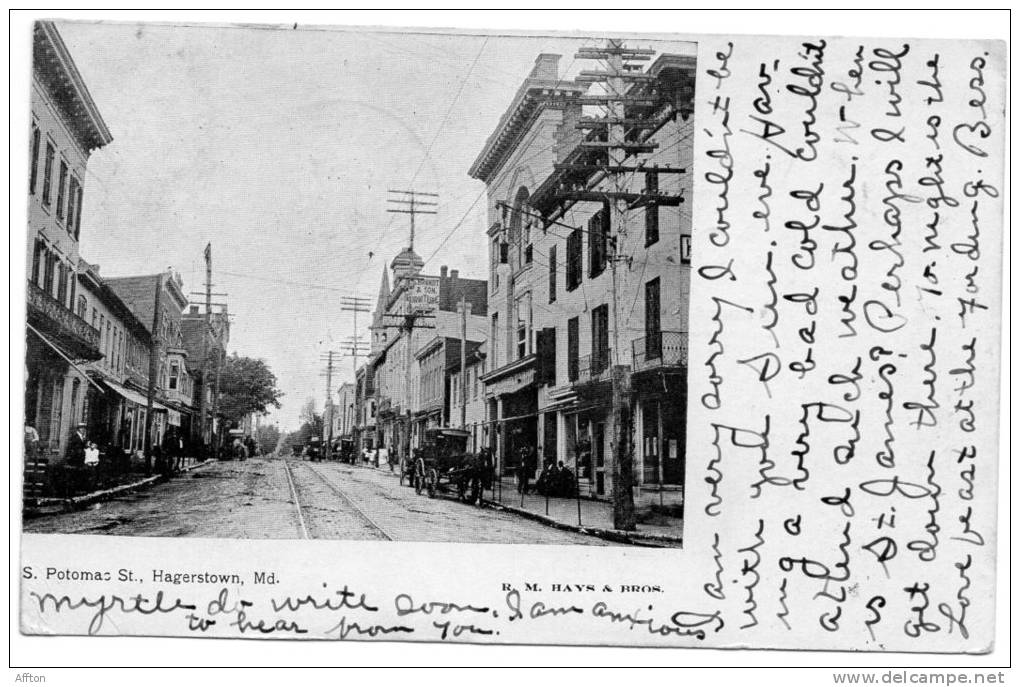 BRANDT
& SON.
FURNITURE
S. Potomac St., Hagerstown, Md.
R. M. HAYS & BROS.
Myrtle do write soon, I am anxious
to hear from You.
I am very sorry I could'nt be
with you Sun. eve. Hav-
ing a very bad cold could'nt
attend such weather. When
is St. James? Perhaps I will
get down there. To night is the
Love feast at the Fording. Bess.
Affton
www.delcampe.net